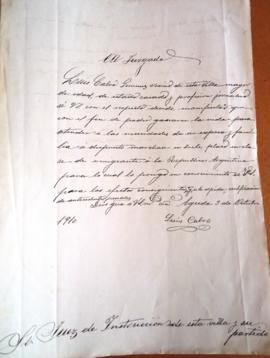 Al Juzgado
Luis Calvo Gimenez vecino de esta villa, mayor
de edad, de estado casado, y profesion jornalero
á Vd con el respeto debido manifiesta: que
con el fin de poder ganarse la vida para
atender á las necesidades de su esposa y fami
lia á dispuesto marchar en breve plazo en cla
se de emigrante á la Republica Argentina
para lo cual lo pongo en conocimiento de Vd.
para los efectos consiguientes
de antecedentes penales
Dios gue á Vd m. añs. Agreda 3 de Octubre
1910
Luis Calvo
Sr. Juez de Instruccion de esta villa y su
partido